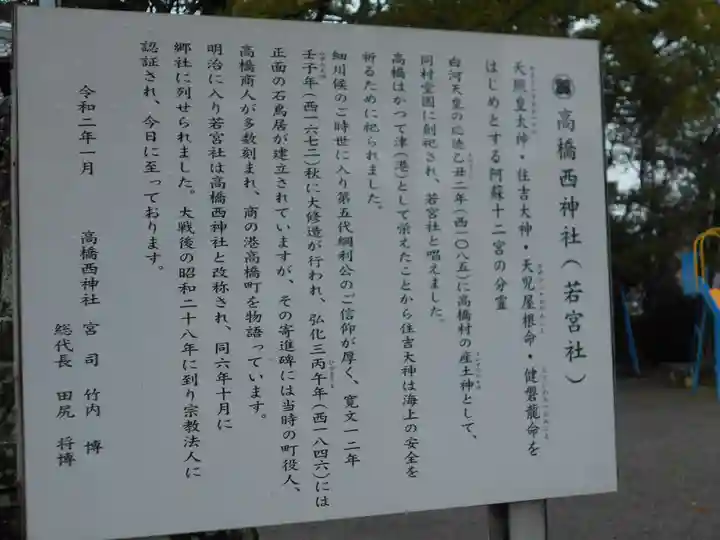 高橋西神社(若宮社)
天照皇大神・住吉大神・天児屋根命・健磐龍命を
はじめとする阿蘇十二宮の分霊
白河天皇の応徳乙丑二年(西一〇八五)に高橋村の産土神として、
同村堂園に創祀され、若宮社と唱えました。
高橋はかつて津(港)として栄えたことから住吉大神は海上の安全を
祈るために祀られました。
細川候のご時世に入り第五代綱利公のご信仰が厚く、寛文一二年
壬子年(西一六七二)秋に大修造が行われ、弘化三丙午年(西一八四六)には
正面の石鳥居が建立されていますが、その寄進碑には当時の町役人、
高橋商人が多数刻まれ、商の港高橋町を物語っています。
明治に入り若宮社は高橋西神社と改称され、同六年十月に
郷社に列せられました。大戦後の昭和二十八年に到り宗教法人に
認証され、今日に至っております。
令和二年一月
高橋西神社 宮司 竹内 博
総代長 田尻 将博